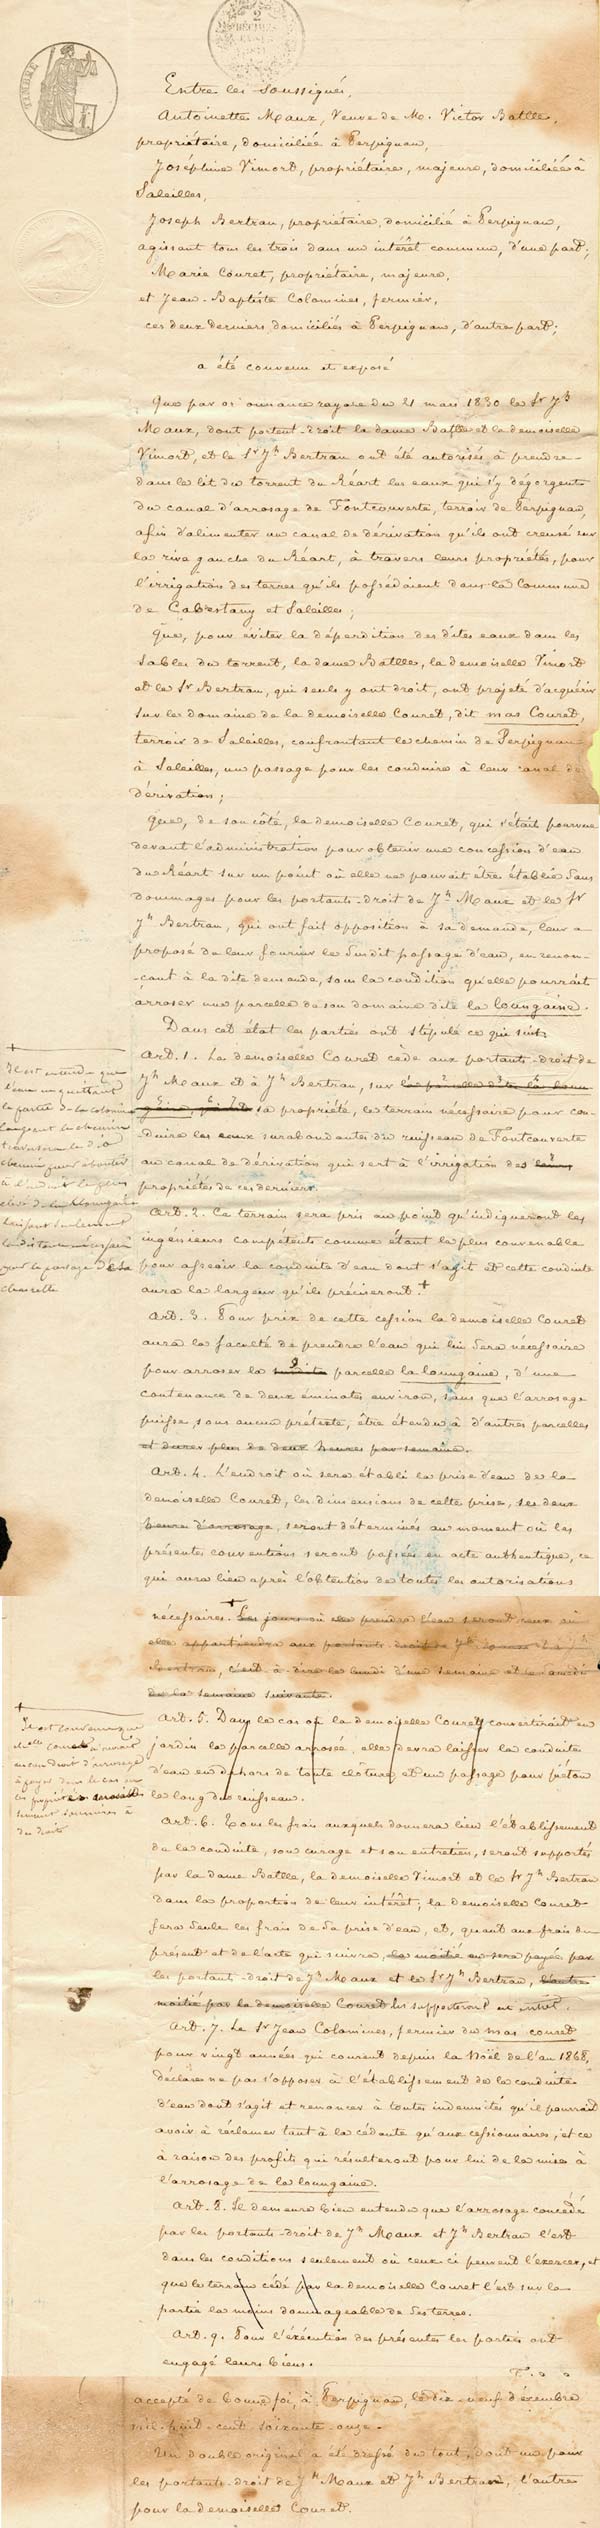 TIMBRE
2
Entre les soussignés,
Antoinette Maux, Veuve de M. Victor Batlle,
propriétaire, domiciliée à Perpignan,
Joséphine Vimort, propriétaire, majeure, domiciliée à
Saleilles,
Joseph Bertran, propriétaire, domicilié à Perpignan,
agissant tous les trois dans un intérêt commun, d'une part;
Marie Couret, propriétaire, majeure,
et Jean-Baptiste Colomines, fermier,
ces deux derniers domiciliés à Perpignan, d'autre part;
a été convenu et exposé
Que par ordonnance royale du 21 mars 1830 le Sr Jh
Maux, dont portent-droit la dame Batlle et la demoiselle
Vimort, et le Sr Jh Bertran ont été autorisés à prendre
dans le lit du torrent du Réart les eaux qui s'y dégorgent
du canal d'arrosage de Fontcouverte, terroir de Perpignan,
afin d'alimenter un canal de dérivation qu'ils ont creusé sur
la rive gauche du Réart, à travers leurs propriétés, pour
l'irrigation des terres qu'ils possédaient dans la Commune
de Cabestany et Saleilles;
Que, pour éviter la déperdition des dites eaux dans les
sables du torrent, la dame Batlle, la demoiselle Vimort
et le Sr Bertran, qui seuls y ont droit, ont projeté d'acquérir
sur le domaine de la demoiselle Couret, dit mas Couret,
terroir de Saleilles, confrontant le chemin de Perpignan
à Saleilles, un passage pour les conduire à leur canal de
dérivation;
Que, de son côté, la demoiselle Couret, qui s'était pourvue
devant l'administration pour obtenir une concession d'eau
du Réart sur un point où elle ne pouvait être établie sans
dommages pour les portants-droit de Jh Maux et le Sr
Jh Bertran, qui ont fait opposition à sa demande, leur a
proposé de leur fournir le susdit passage d'eau, en renon-
çant à la dite demande, sous la condition qu'elle pourrait
arroser une parcelle de son domaine dite la loungaine.
Dans cet état les parties ont stipulé ce qui suit.
Art. 1. La demoiselle Couret cède aux portants-droit de
Jh Maux et à Jh Bertran, sur
sa propriété, le terrain nécessaire pour con-
duire les eaux surabondantes du ruisseau de Fontcouverte
au canal de dérivation qui sert à l'irrigation des
propriétés de ces derniers.
Art. 2. Ce terrain sera pris au point qu'indiqueront les
ingénieurs compétents comme étant le plus convenable
pour asseoir la conduite d'eau dont s'agit et cette conduite
aura la largeur qu'ils préciseront. +
+
Il est entendu que
l'eau en quittant
la partie de la colomine
longeant le chemin
traversera le dit
chemin pour aboutir
à l'endroit le plus
élevé de la loungaine
laissant seulement
la distance nécessaire
pour le passage d'une
charrette
Art. 3. Pour prix de cette cession la demoiselle Couret
aura la faculté de prendre l'eau qui lui sera nécessaire
pour arroser la susdite parcelle la loungaine, d'une
contenance de deux éminates environ, sans que l'arrosage
puisse, sous aucun prétexte, être étendu à d'autres parcelles
et durer plus de deux heures par semaine.
Art. 4. L'endroit où sera établi la prise d'eau de la
demoiselle Couret, les dimensions de cette prise, ses deux
heures d'arrosage, seront déterminés au moment où les
présentes conventions seront passées en acte authentique, ce
qui aura lieu après l'obtention de toutes les autorisations
nécessaires. + Les jours où elle prendra l'eau seront ceux où
elle appartiendra aux portants-droit de Jh Maux et à Jh
Bertran, c'est-à-dire le lundi d'une semaine et le samedi
de la semaine suivante.
+
Il est convenu que
Melle Couret n'aurait
aucun droit d'arrosage
à payer dans le cas où
ces propriétés arrosables
seraient soumises à
un droit
Art. 5. Dans le cas où la demoiselle Couret convertirait en
jardin la parcelle arrosée, elle devra laisser la conduite
d'eau en dehors de toute clôture et un passage pour piéton
le long du ruisseau.
Art. 6. Tous les frais auxquels donnera lieu l'établissement
de la conduite, son curage et son entretien, seront supportés
par la dame Batlle, la demoiselle Vimort et le Sr Jh Bertran
dans la proportion de leur intérêt; la demoiselle Couret
fera seule les frais de sa prise d'eau, et, quant aux frais du
présent et de l'acte qui suivra, la moitié en sera payée par
les portants-droit de Jh Maux et le Sr Jh Bertran, l'autre
moitié par la demoiselle Couret les supporteront en entier.
Art. 7. Le Sr Jean Colomines, fermier du mas couret
pour vingt années qui courent depuis la Noël de l'an 1868,
déclare ne pas s'opposer à l'établissement de la conduite
d'eau dont s'agit et renoncer à toutes indemnités qu'il pourrait
avoir à réclamer tant à la cédante qu'aux cessionnaires, et ce
à raison des profits qui résulteront pour lui de la mise à
l'arrosage de la loungaine.
Art. 8. Il demeure bien entendu que l'arrosage concédé
par les portants-droit de Jh Maux et Jh Bertran l'est
dans les conditions seulement où ceux ci peuvent l'exercer, et
que le terrain cédé par la demoiselle Couret l'est sur la
partie la moins dommageable de ses terres.
Art. 9. Pour l'éxécution des présentes les parties ont
engagé leurs biens.
accepté de bonne foi, à Perpignan, le dix-neuf décembre
mil-huit-cent soixante-onze.
Un double original a été dressé du tout, dont un pour
les portants-droit de Jh Maux et Jh Bertran, l'autre
pour la demoiselle Couret.